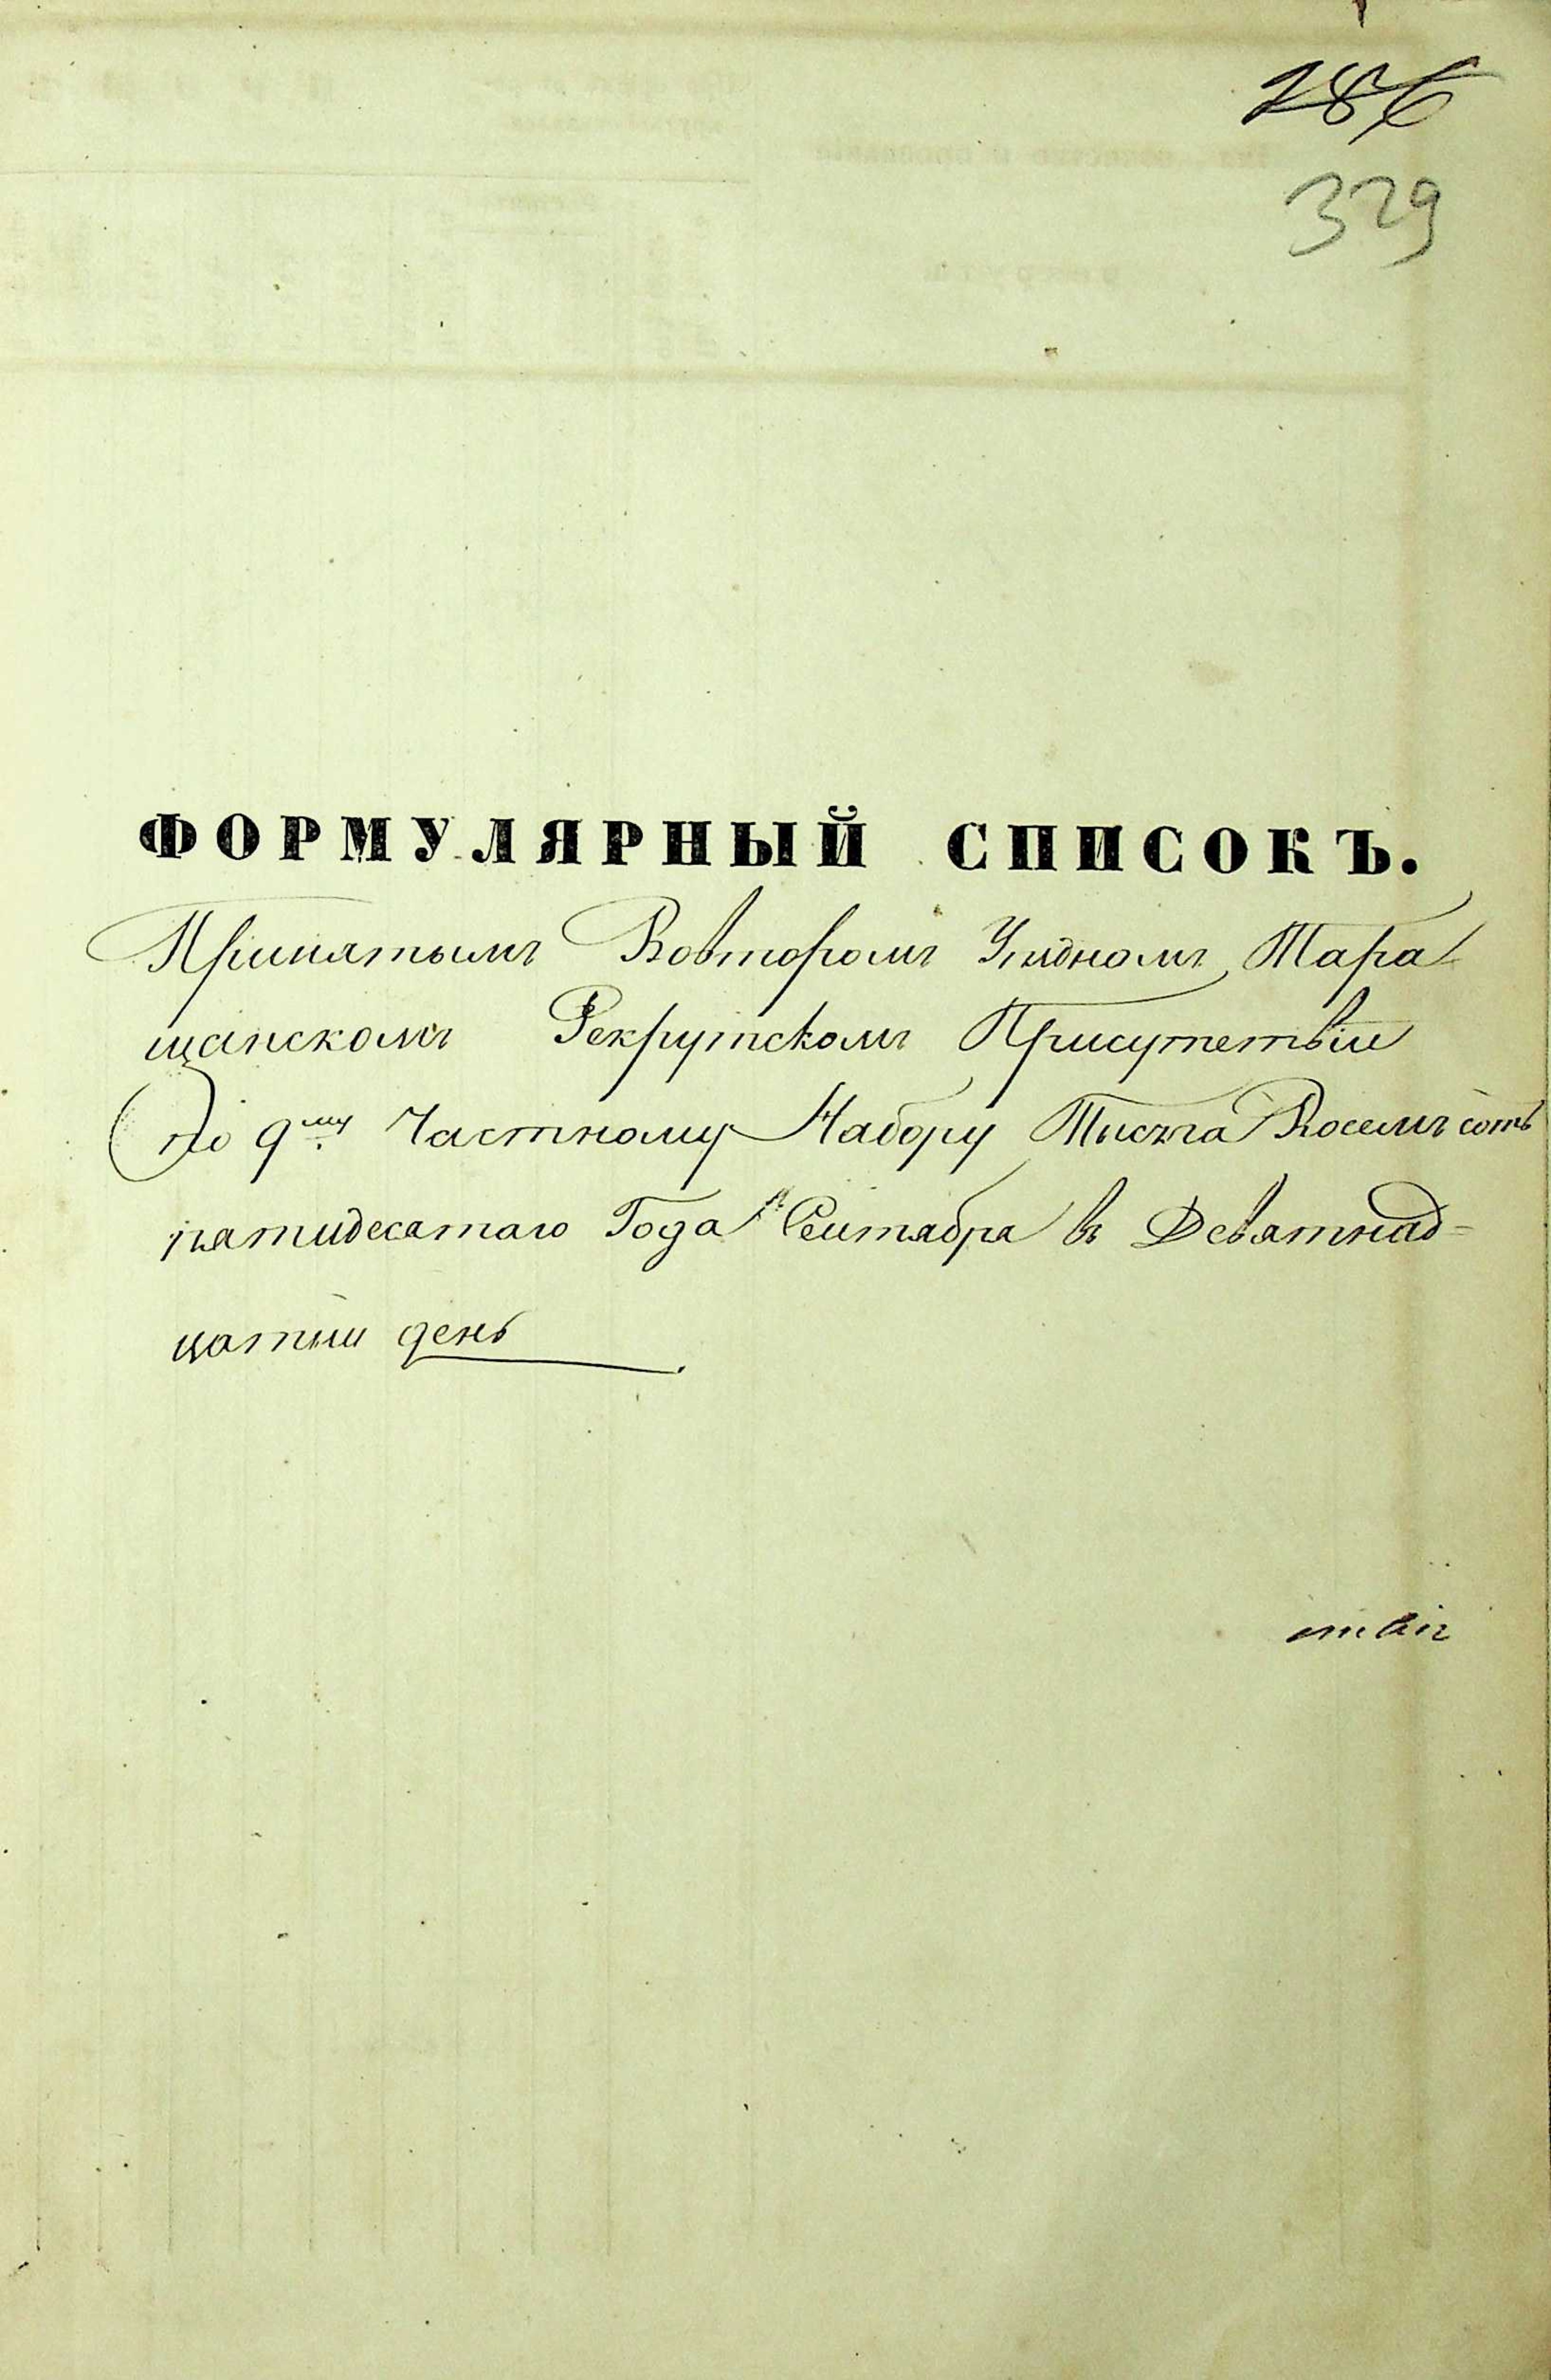 286
329
ФОРМУЛЯРНЫЙ СПИСОКЪ.
Принятымъ Вовторомъ Уѣздномъ Тара
щанскомъ Рекрутскомъ Присутствіи
По 9му Частному Набору Тысяча Восемъ сотъ
пятидесятаго Года Сентабра въ Девятнад=
цатый день